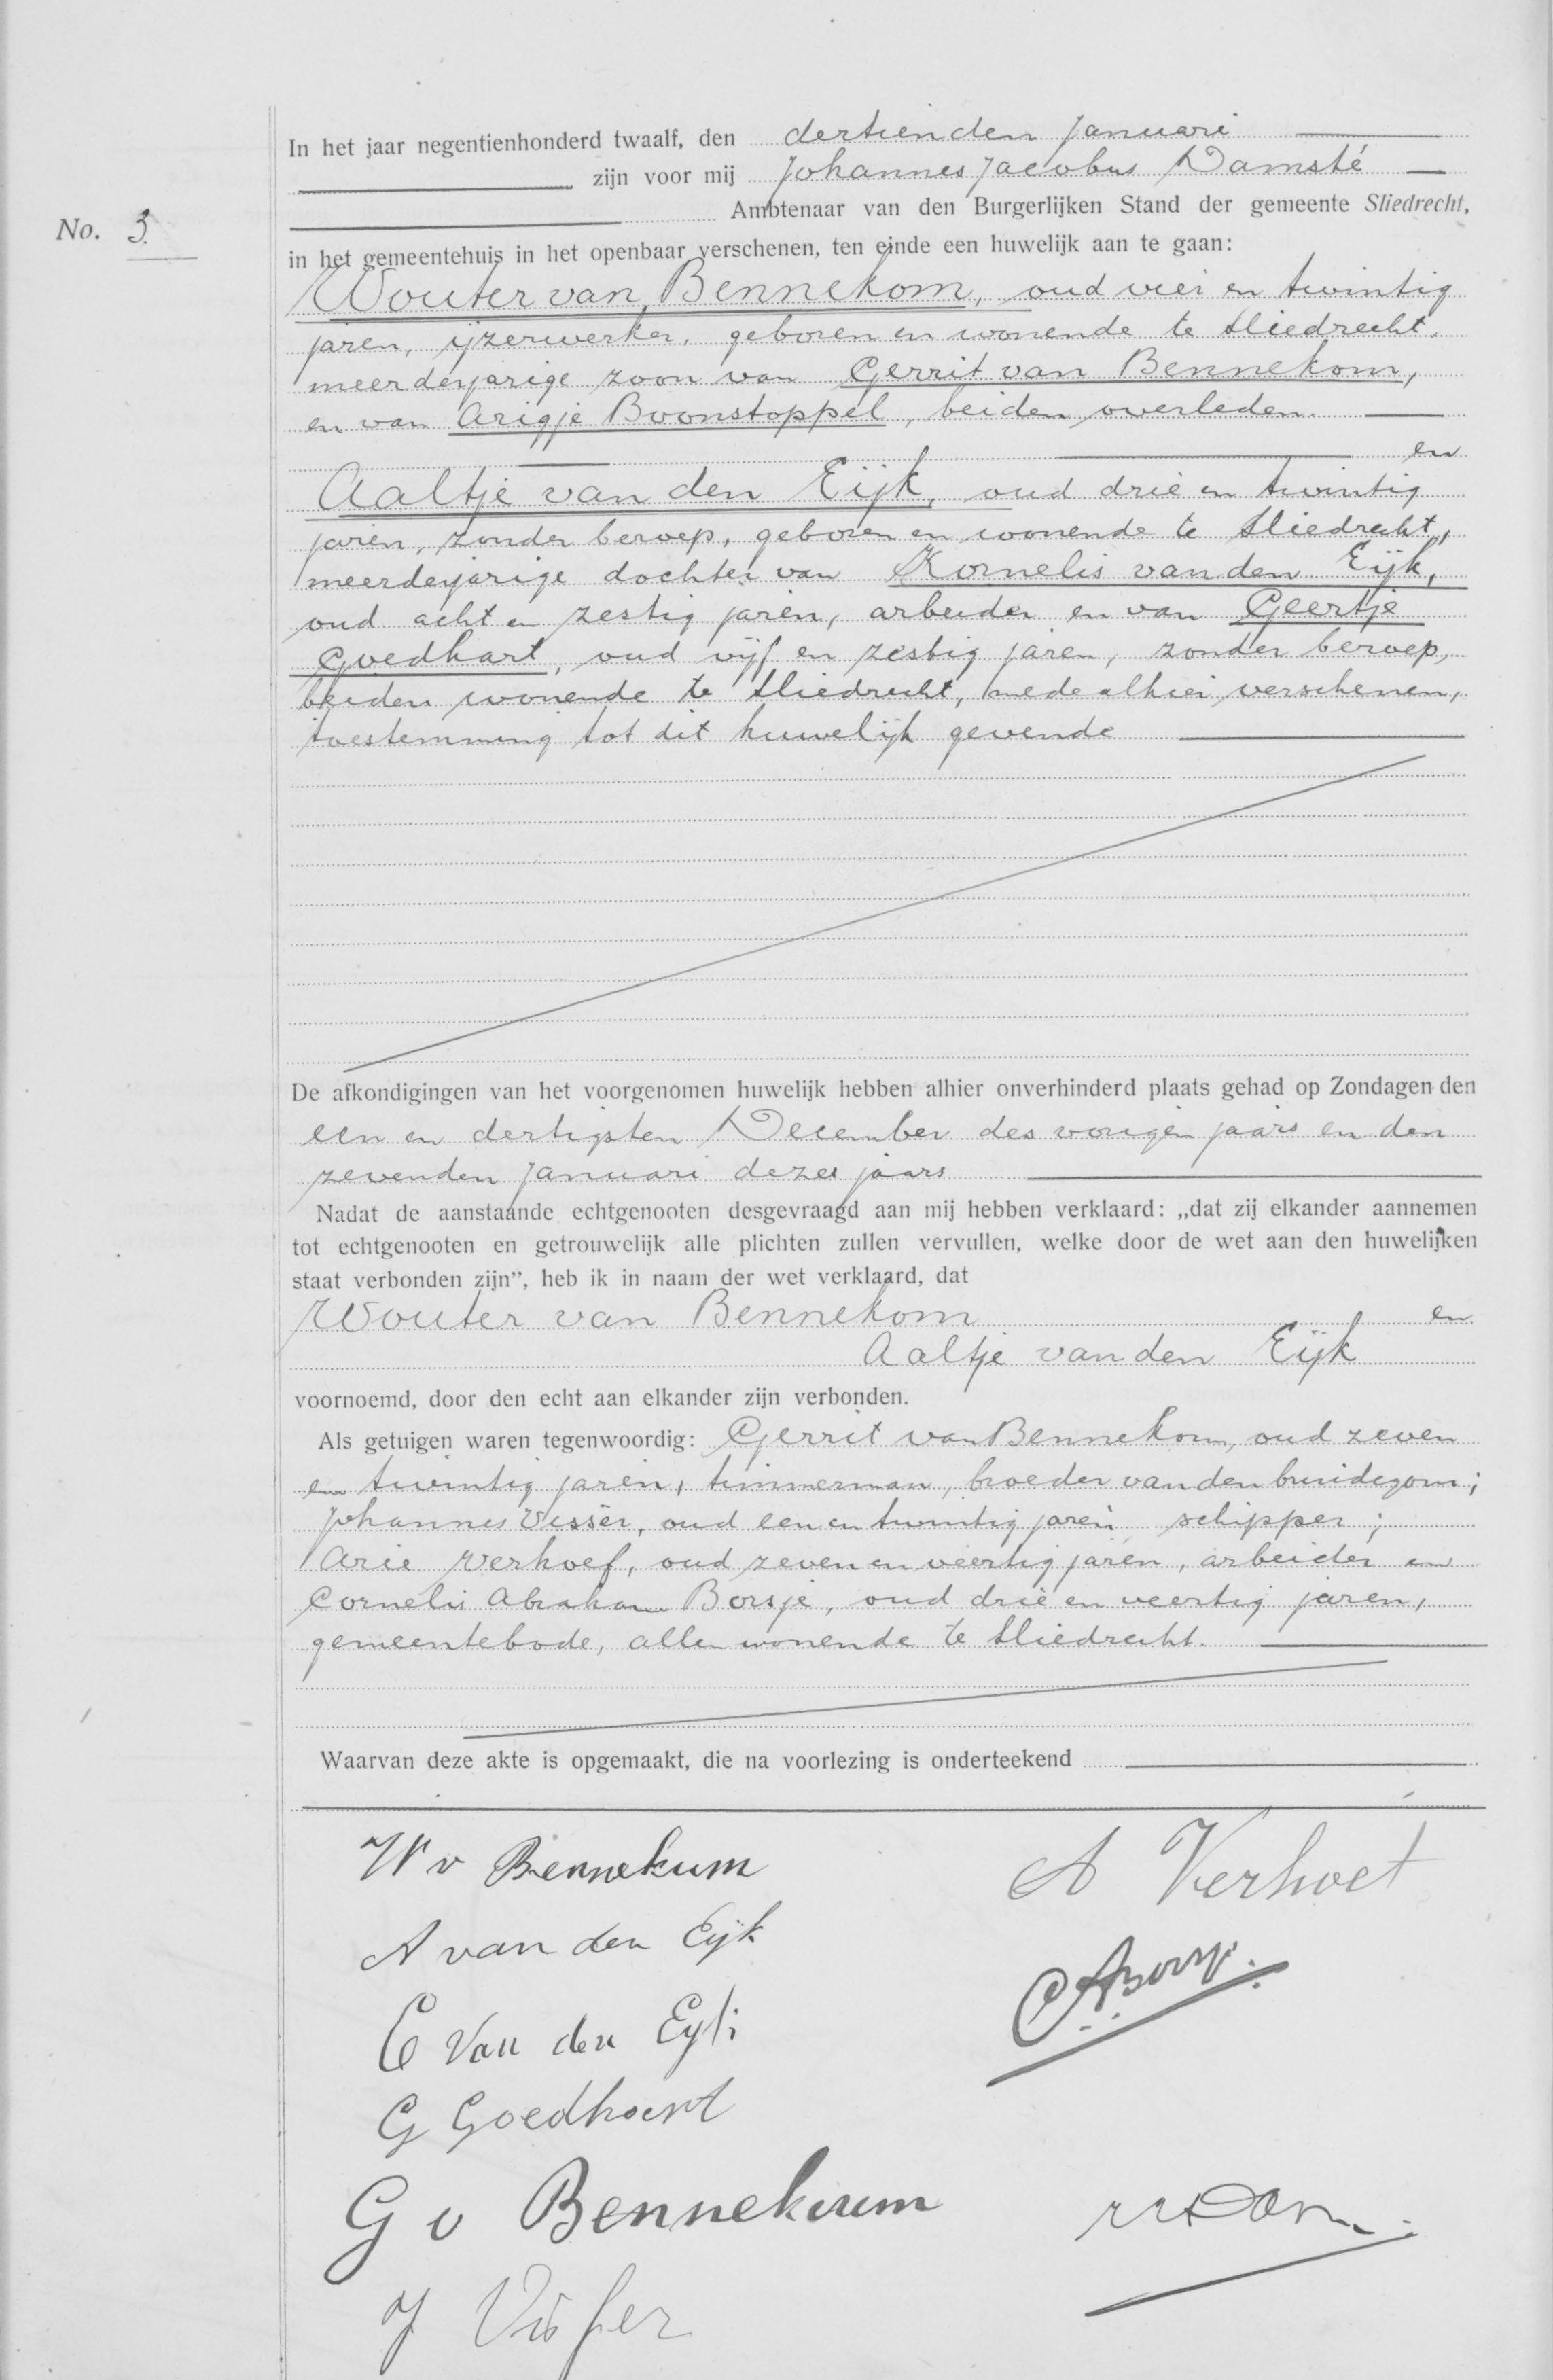 In het jaar negentienhonderd twaalf, den dertienden Januari
zijn voor mij Johannes Jacobus Damsté
Ambtenaar van den Burgerlijken Stand der gemeente Sliedrecht,
No. 3.
in het gemeentehuis in het openbaar verschenen, ten einde een huwelijk aan te gaan:
Wouter van Bennekom, oud vier en twintig
jaren, ijzerwerker, geboren en wonende te Sliedrecht,
meerderjarige zoon van Gerrit van Bennekom,
en van Arigje Boonstoppel, beiden overleden.
en
Aaltje van den Eijk, oud drie en twintig
jaren, zonder beroep, geboren en wonende te Sliedrecht,
meerderjarige dochter van Kornelis van den Eijk,
oud acht en zestig jaren, arbeider en van Geertje
Goedhart, oud vijf en zestig jaren, zonder beroep,
beiden wonende te Sliedrecht, mede alhier verschenen,
toestemming tot dit huwelijk gevende
De afkondigingen van het voorgenomen huwelijk hebben alhier onverhinderd plaats gehad op Zondagen den
een en dertigsten December des vorigen jaars en den
zevenden Januari dezes jaars
Nadat de aanstaande echtgenooten desgevraagd aan mij hebben verklaard: „dat zij elkander aannemen
tot echtgenooten en getrouwelijk alle plichten zullen vervullen, welke door de wet aan den huwelijken
staat verbonden zijn”, heb ik in naam der wet verklaard, dat
Wouter van Bennekom en
Aaltje van den Eijk
voornoemd, door den echt aan elkander zijn verbonden.
Als getuigen waren tegenwoordig: Gerrit van Bennekom, oud zeven
en twintig jaren, timmerman, broeder van den bruidegom;
Johannes Visser, oud een en twintig jaren schipper;
Arie Verhoef, oud zeven en veertig jaren, arbeider en
Cornelis Abraham Borsje, oud drie en veertig jaren,
gemeentebode, allen wonende te Sliedrecht.
Waarvan deze akte is opgemaakt, die na voorlezing is onderteekend
W v Bennekum
A Verhoef
A van den Eijk
C A Borsje.
C Van den Eyk
G Goedhart
G v Bennekum
J Visser